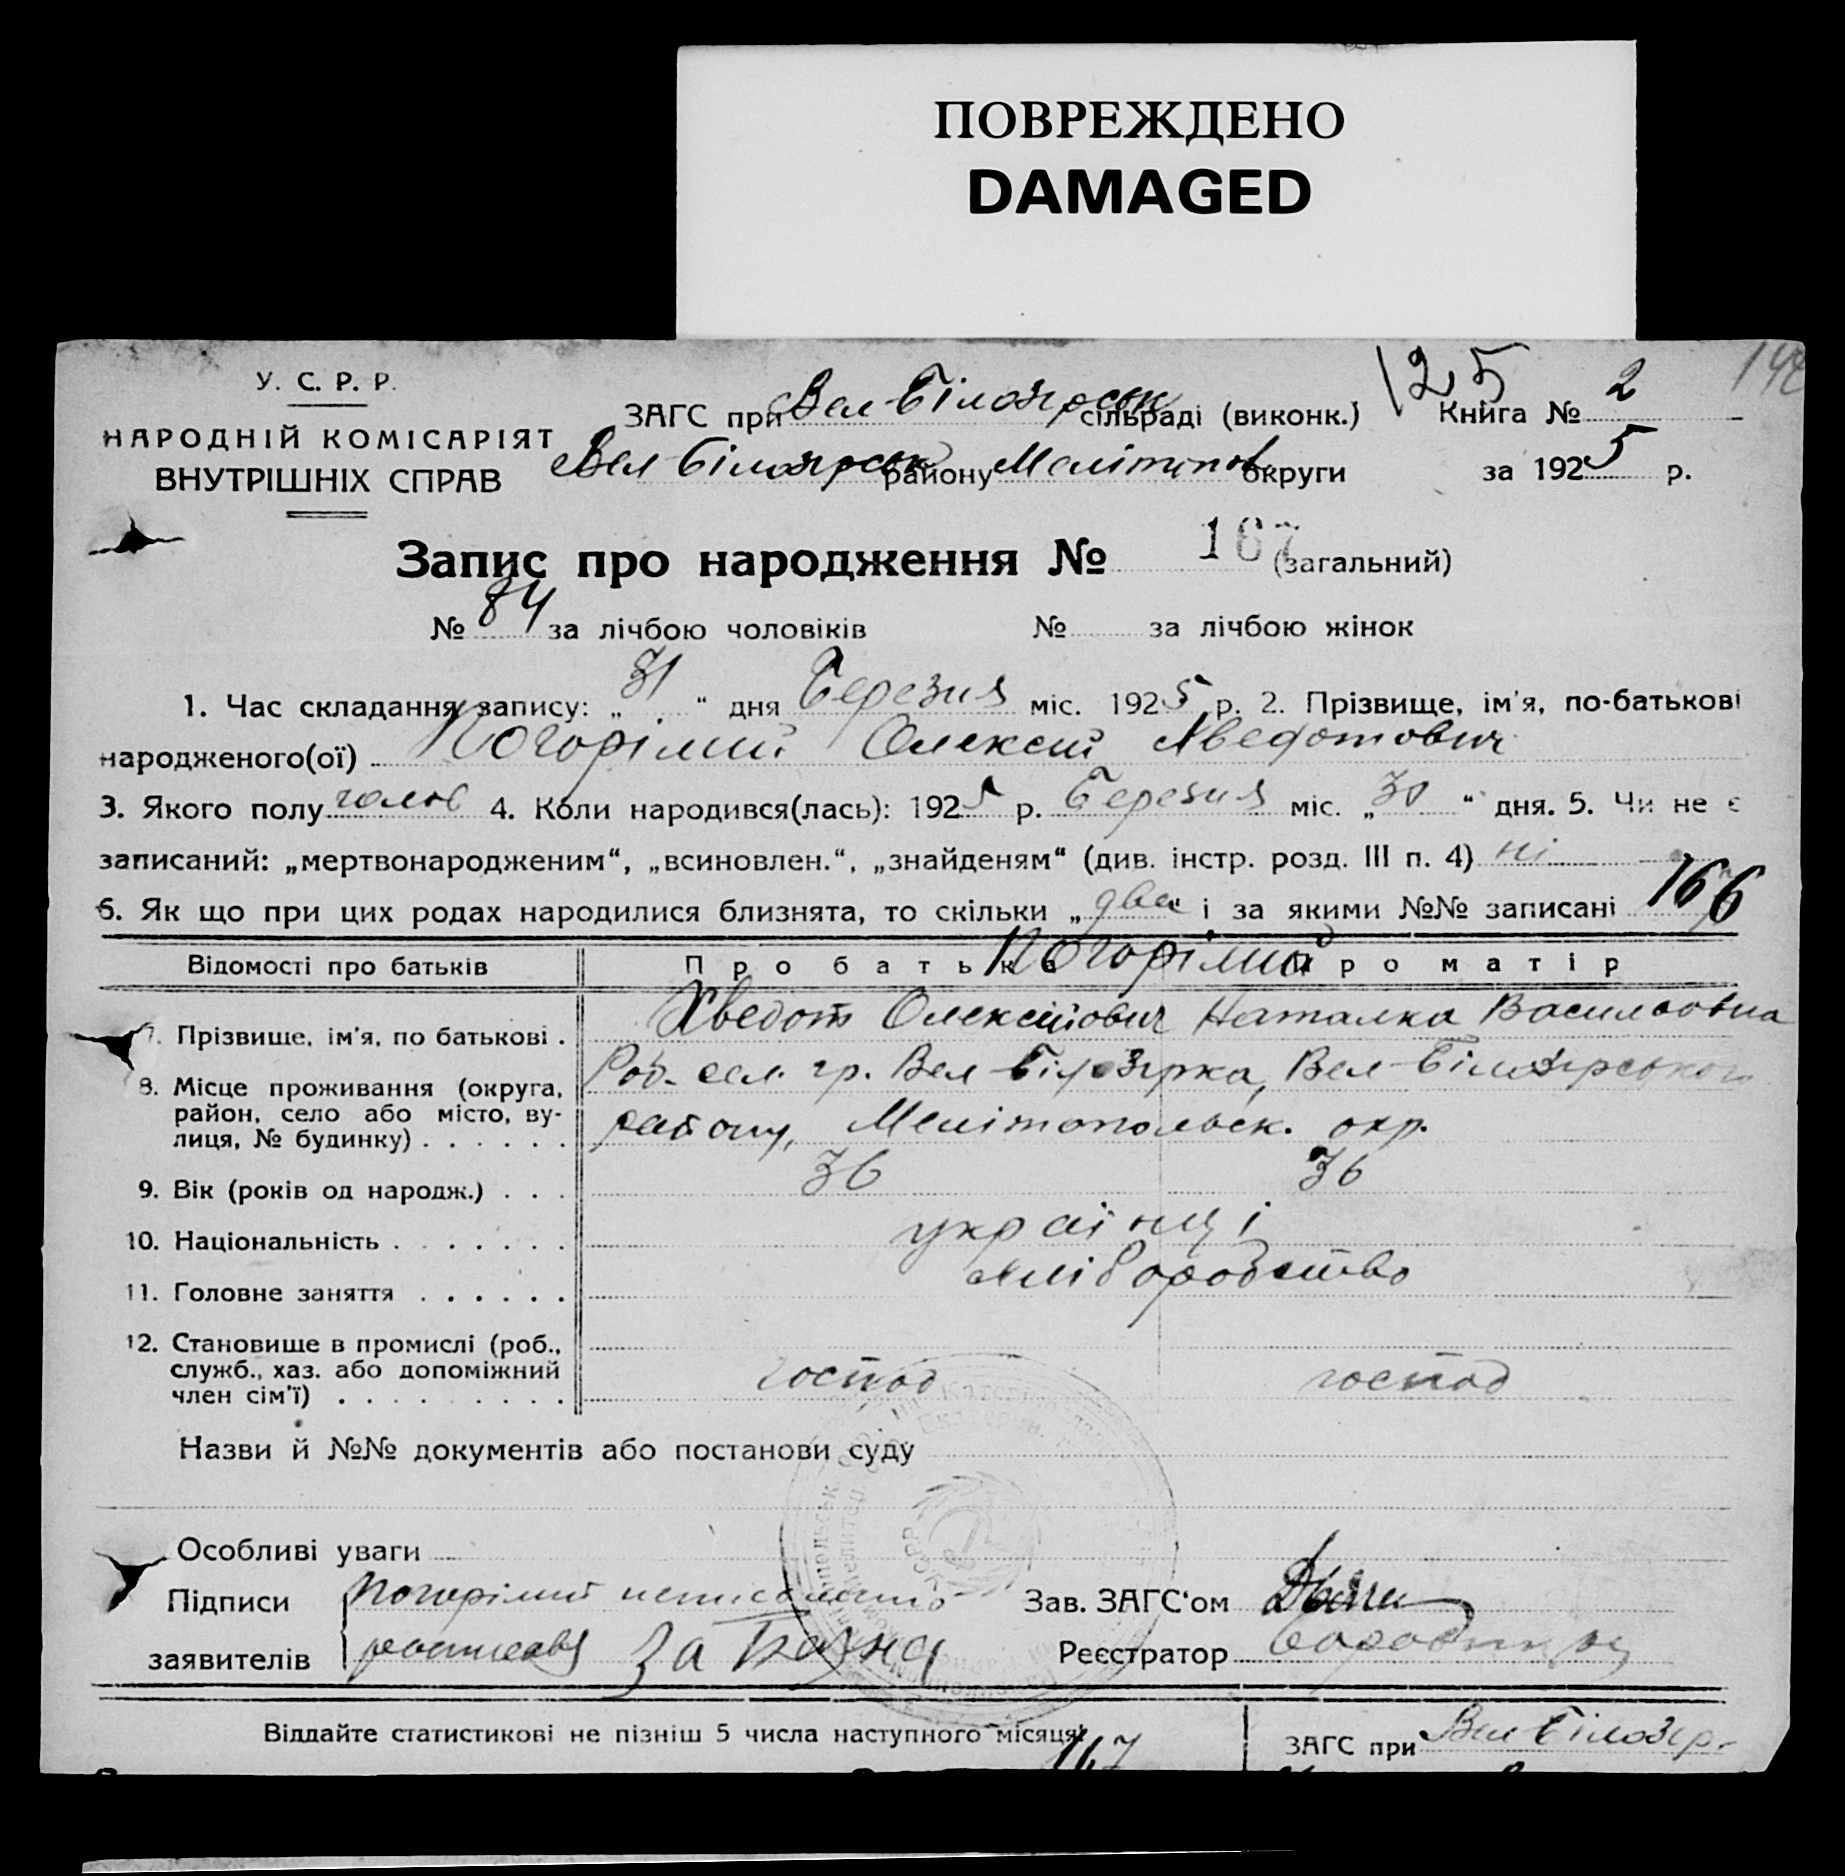 ПОВРЕЖДЕНО
DAMAGED
У. С. Р. Р.
НАРОДНІЙ КОМІСАРІЯТ
ВНУТРІШНІХ СПРАВ
125
ЗАГС при Вел-Білозірськ сільраді (виконк.) Книга № 2
Вел-Білозірськ району Мелітоп. округи за 1925 р.
Запис про народження № 167 (загальний)
№ 84 за лічбою чоловіків № за лічбою жінок
1. Час складання запису: „31“ дня Березня міс. 1925 р. 2. Прізвище, ім'я, по-батькові
народженого(ої) Погорілий Олексій Хведотович
3. Якого полу чолов 4. Коли народився(лась): 1925 р. Березня міс. „30“ дня. 5. Чи не є
записаний: „мертвонародженим“, „всиновлен.“, „знайденям“ (див. інстр. розд. III п. 4) ні
6. Як що при цих родах народилися близнята, то скільки „два“ і за якими №№ записані 166
Відомості про батьків Про батька Погорілий Про матір
7. Прізвище, ім'я, по батькові . Хведот Олексійович Наталка Васильовна
8. Місце проживання (округа, район, село або місто, вулиця, № будинку) . . . . . . Вел-Білозірка, Вел-Білозірського
району, Мелітопольск. окр.
9. Вік (років од народж.) . . . 36 36
10. Національність . . . . . . . українці
11. Головне заняття . . . . . . хліборобство
12. Становище в промислі (роб., служб., хаз. або допоміжний член сім'ї) . . . . . . . . . господ господ
Назви й №№ документів або постанови суду
Особливі уваги
Підписи Погорілий Зав. ЗАГС'ом
заявителів за Реєстратор
Віддайте статистикові не пізніш 5 числа наступного місяця!
167
ЗАГС при Вел Білозір.